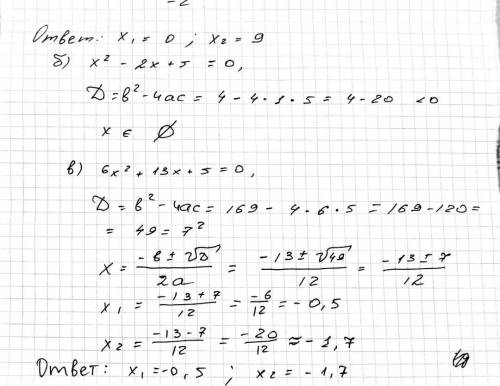 -2
Ответ: x₁ = 0 ; x₂ = 9
б) x² - 2x + 5 = 0,
D = в² - 4ac = 4 - 4·1·5 = 4 - 20 < 0
x ∈ ∅
в) 6x² + 13x + 5 = 0,
D = в² - 4ac = 169 - 4·6·5 = 169 - 120 =
= 49 = 7²
x = (-в ± √D)/(2a) = (-13 ± √49)/12 = (-13 ± 7)/12
x₁ = (-13 + 7)/12 = -6/12 = -0,5
x₂ = (-13 - 7)/12 = -20/12 ≈ -1,7
Ответ: x₁ = -0,5 ; x₂ = -1,7